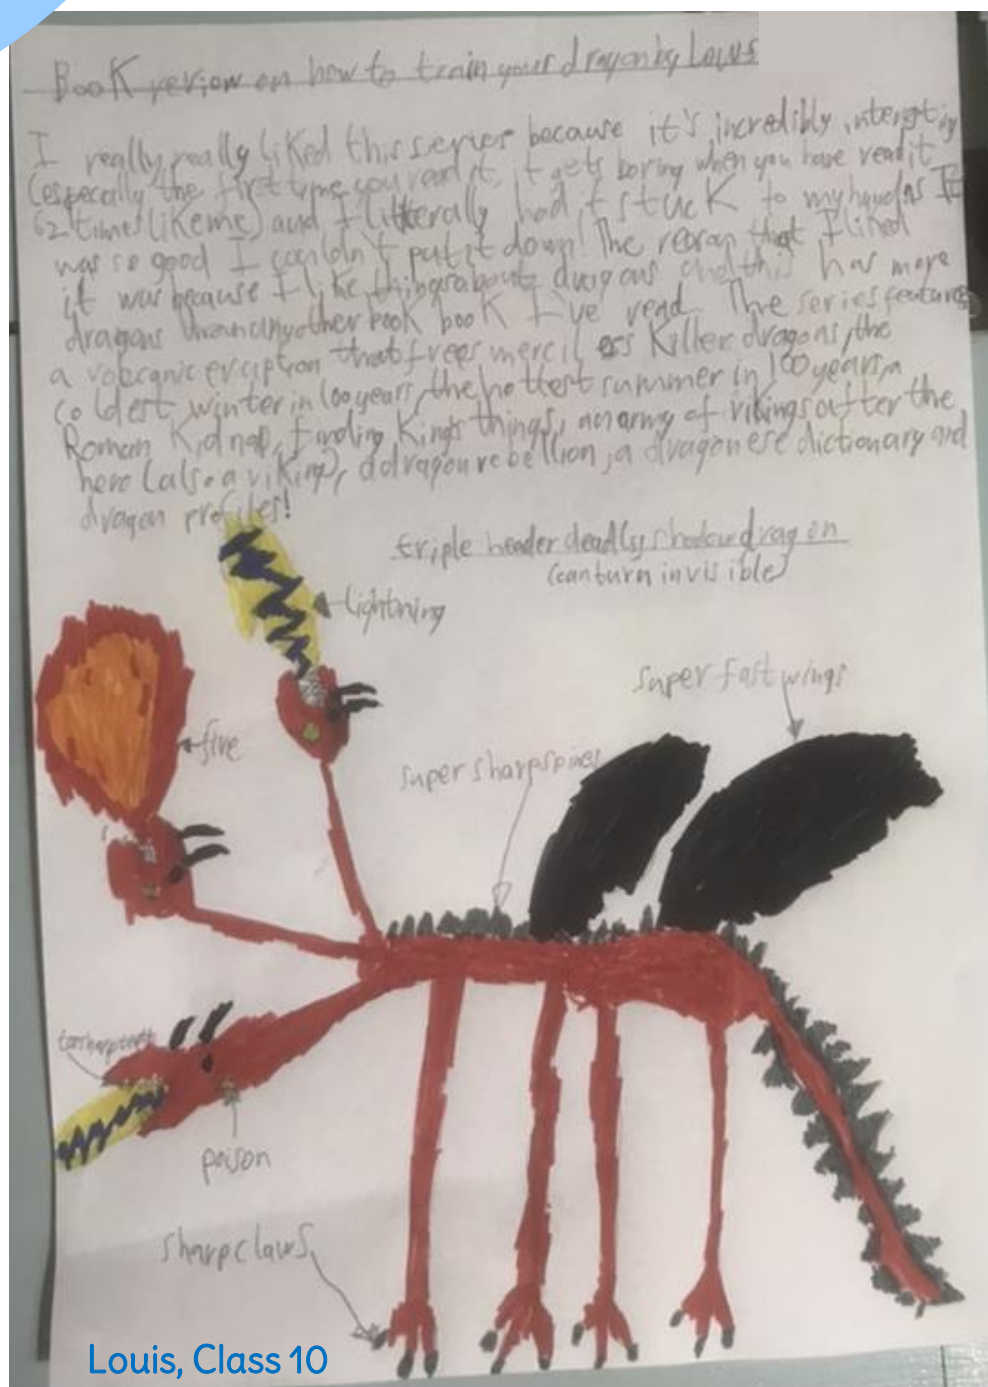 Book review on how to train your dragon by Louis
I really, really liked this series because it's incredibly interesting
(especially the first time you read it, it gets boring when you have read it
62 times like me) and I litterally had it stuck to my hands It
was so good I couldn't put it down! The reason that I liked
it was because I like things about dragons and this has more
dragons than any other book book I've read. The series features
a volcanic eruption that frees merciless Killer dragons, the
coldest winter in 100 years, the hottest summer in 100 years, a
Roman Kidnap, finding King's things, an army of vikings after the
hero (also a viking), a dragon rebellion, a dragonese dictionary and
dragon profiles!
triple header deadly shadow dragon
(can turn invisible)
lightning
super fast wings
fire
super sharp spines
poison
sharp claws
Louis, Class 10